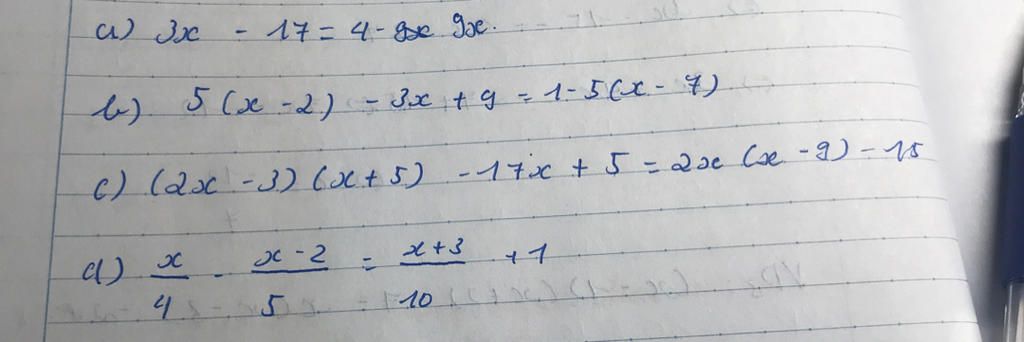 a) 3x - 17 = 4 - 9x.
b) 5(x - 2) - 3x + 9 = 1 - 5(x - 7)
c) (2x - 3)(x + 5) - 17x + 5 = 2x(x - 9) - 15
d) x/4 - (x - 2)/5 = (x + 3)/10 + 1